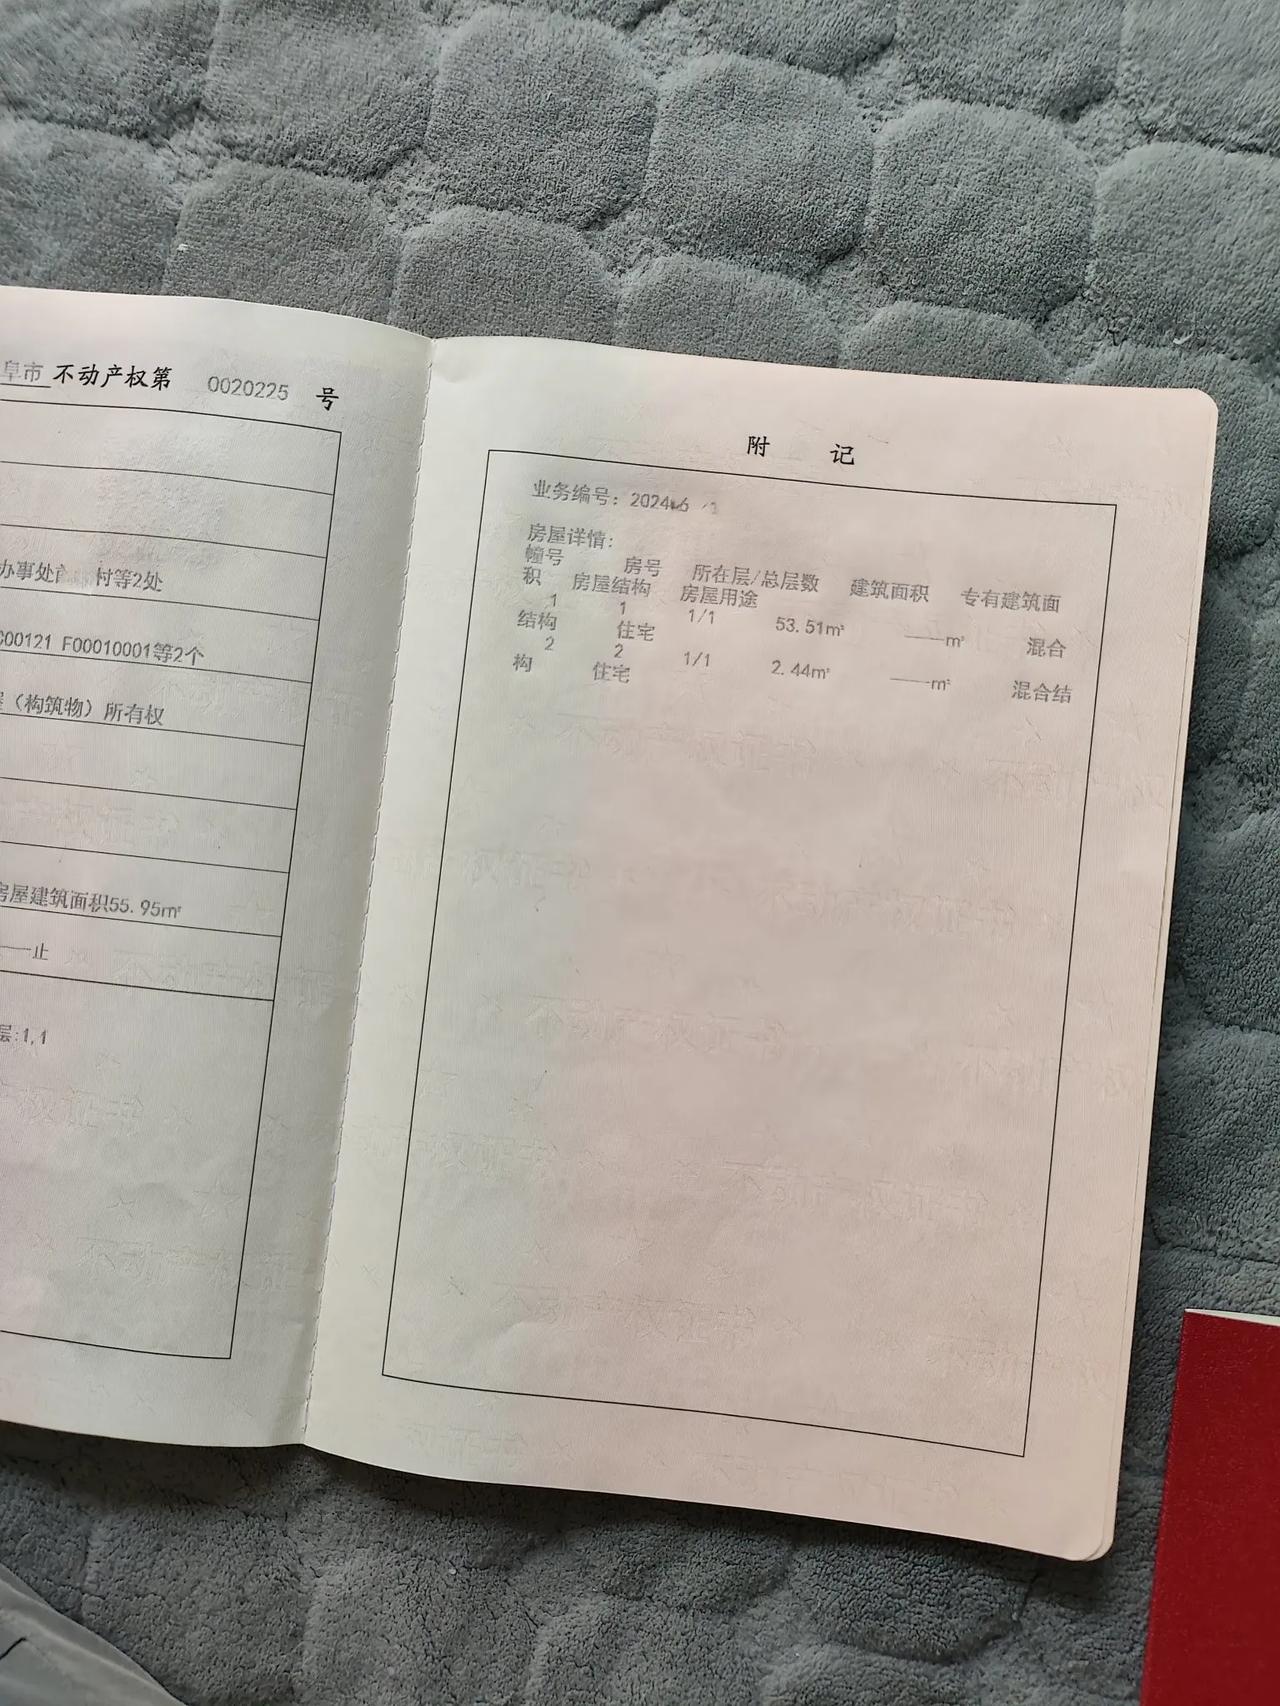 阜市 不动产权第 0020225 号
办事处 村等2处
C00121 F00010001等2个
（构筑物）所有权
房屋建筑面积55.95㎡
——止
层:1,1
附 记
业务编号：2024 6
房屋详情：
幢号 房号 所在层/总层数 建筑面积 专有建筑面
积 房屋结构 房屋用途
1 1 1/1 53.51㎡ ——㎡ 混合
结构 住宅
2 2 1/1 2.44㎡ ——㎡ 混合结
构 住宅